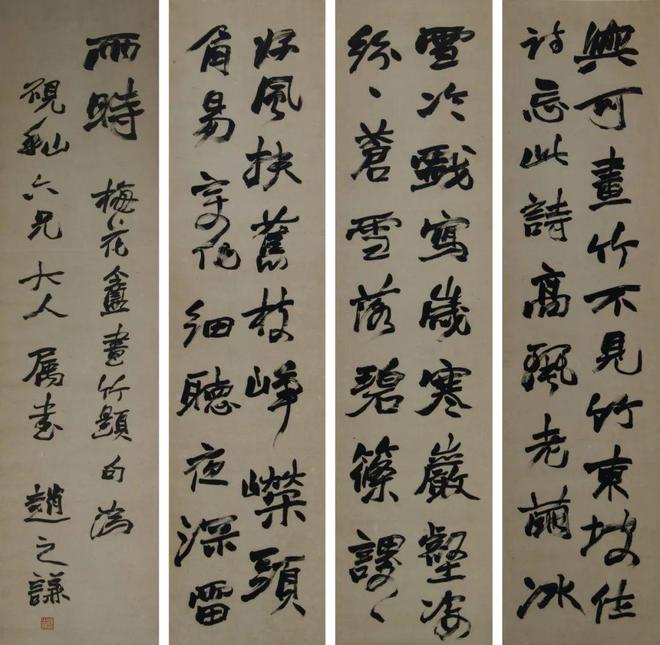 與可畫竹不見竹東坡作
詩忘此詩高麗老繭冰
雪冷戲寫歲寒巖壑姿
紛〻蒼雪落碧篠謖〻
好風扶舊枝崢嶸頭
角易變化細聽夜深雷
雨時 梅花盦畫竹題句為
硯六兄大人屬書 趙之謙